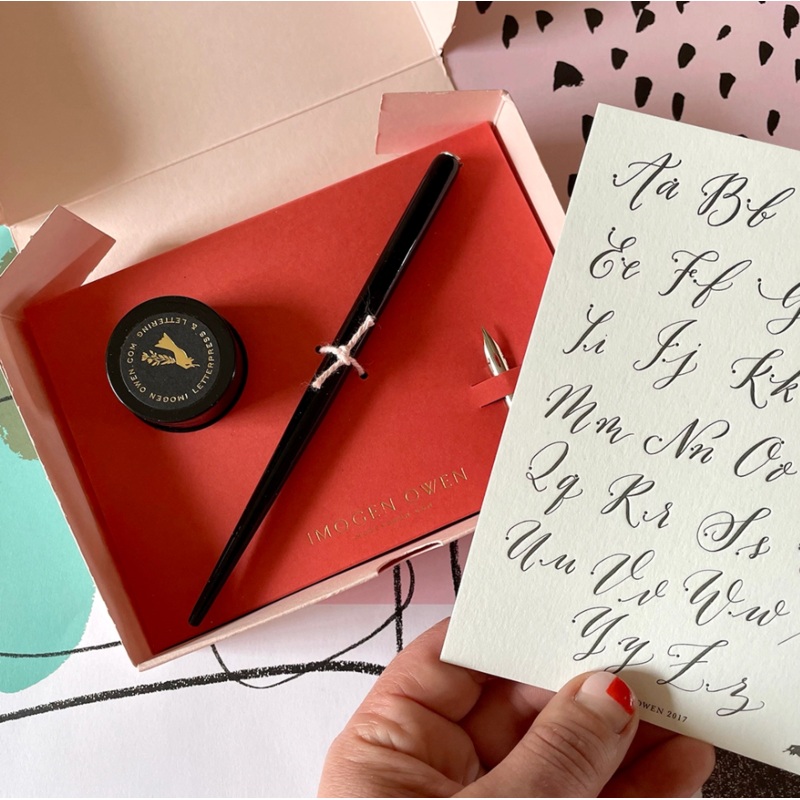 IMOGEN OWEN LETTERPRESS & LETTERING
IMOGENOWEN.COM
IMOGEN OWEN
Aa Bb
Ee Ff G
Ii Jj Kk
Mm Nn Oo
Qq Rr Ss
Uu Vv Ww
Yy Zz
OWEN 2017